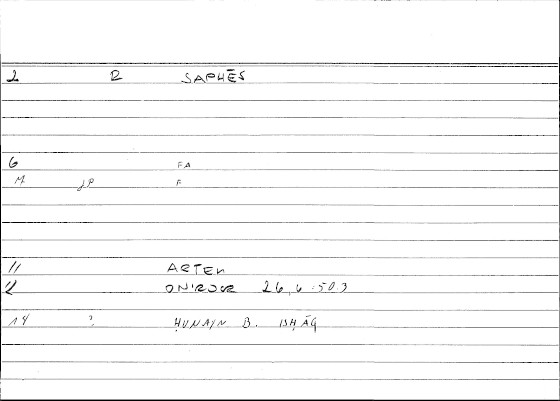 2 R SAPHĒS
6 FA
M gP F
11 ARTEM
12 ONIROCR 26, 6 :50.3
14 ? ḤUNAYN B. ISḤĀQ